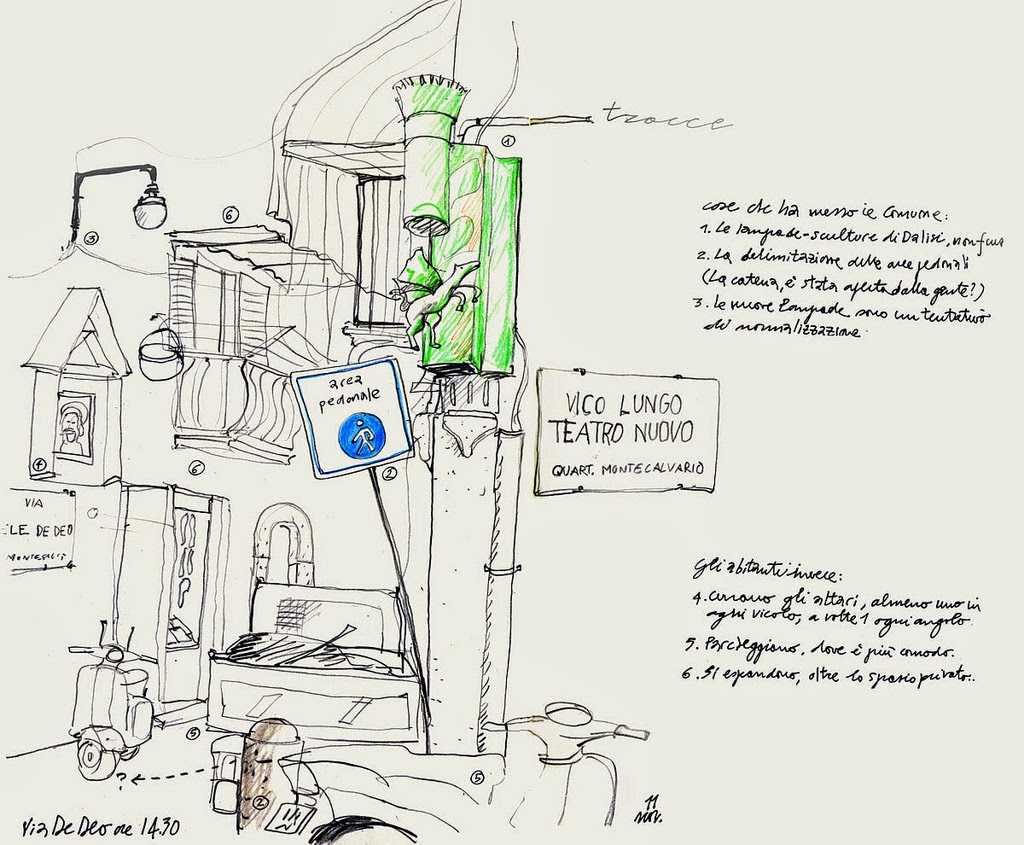 tracce
1
cose che ha messo il Comune:
1. Le lampade-sculture di Dalisi, non funz
2. La delimitazione delle aree pedonali
(La catena, è stata aperta dalla gente?)
3. Le nuove lampade sono un tentativo
di normalizzazione.
6
3
area
pedonale
2
VICO LUNGO
TEATRO NUOVO
QUART. MONTECALVARIO
4
6
VIA
ELE DE DEO
gli abitanti invece:
4. curano gli altari, almeno uno in
ogni vicolo, a volte 1 ogni angolo.
5. Parcheggiano, dove è più comodo.
6. Si espandono, oltre lo spazio privato..
5
5
?
2
11
nov.
Via De Deo ore 14.30